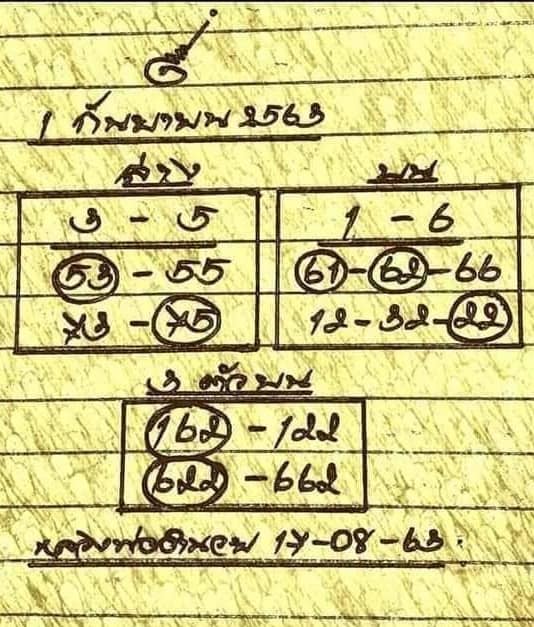 1 กันยายน 2563
ล่าง
บน
3 - 5
1 - 6
53 - 55
61 - 62 - 66
73 - 75
12 - 32 - 22
3 ตัวบน
162 - 122
622 - 662
17-08-63